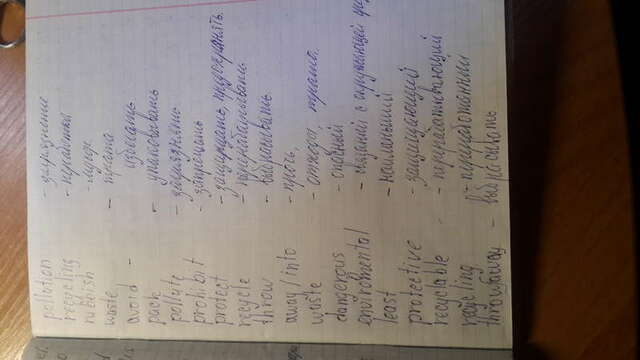 pollution - загрязнение
recycling - переработка
rubbish - мусор
waste - трата
avoid - избегать
pack - упаковывать
pollute - загрязнять
prohibit - запрещать
protect - защищать, предохранять
recycle - перерабатывать
throw - выбрасывать
away/into - прочь,
waste - отходы, трата,
dangerous - опасный
enviromental - связаный с окружающей
least - наименьший
protective - защищающий
recyclable - перерабатывающий
recycling - переработанный
throw away - выбрасывать